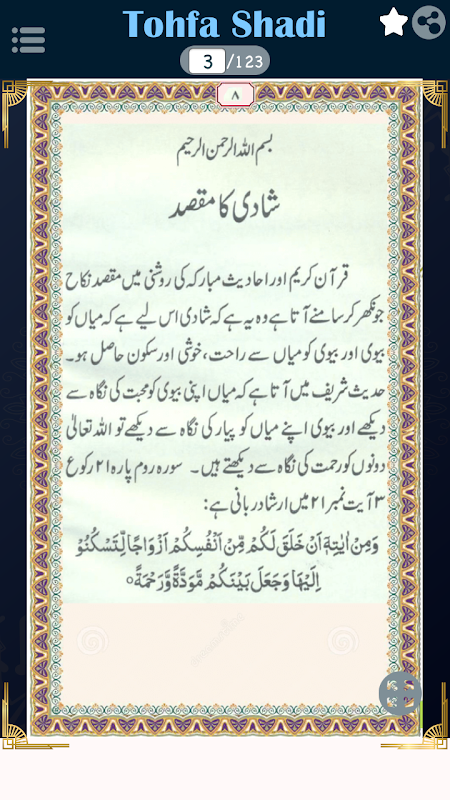 Tohfa Shadi
3/123
۸
بسم اللہ الرحمن الرحیم
شادی کا مقصد
قرآن کریم اور احادیث مبارکہ کی روشنی میں مقصد نکاح
جو نکھر کر سامنے آتا ہے وہ یہ ہے کہ شادی اس لیے ہے کہ میاں کو
بیوی اور بیوی کو میاں سے راحت، خوشی اور سکون حاصل ہو۔
حدیث شریف میں آتا ہے کہ میاں اپنی بیوی کو محبت کی نگاہ سے
دیکھے اور بیوی اپنے میاں کو پیار کی نگاہ سے دیکھے تو اللہ تعالیٰ
دونوں کو رحمت کی نگاہ سے دیکھتے ہیں۔ سورہ روم پارہ ۲۱ رکوع
۳ آیت نمبر ۲۱ میں ارشاد ربانی ہے:
وَمِنْ اٰيٰتِهٖٓ اَنْ خَلَقَ لَكُمْ مِّنْ اَنْفُسِكُمْ اَزْوَاجًا لِّتَسْكُنُوْٓا
اِلَيْهَا وَجَعَلَ بَيْنَكُمْ مَّوَدَّةً وَّرَحْمَةً ○